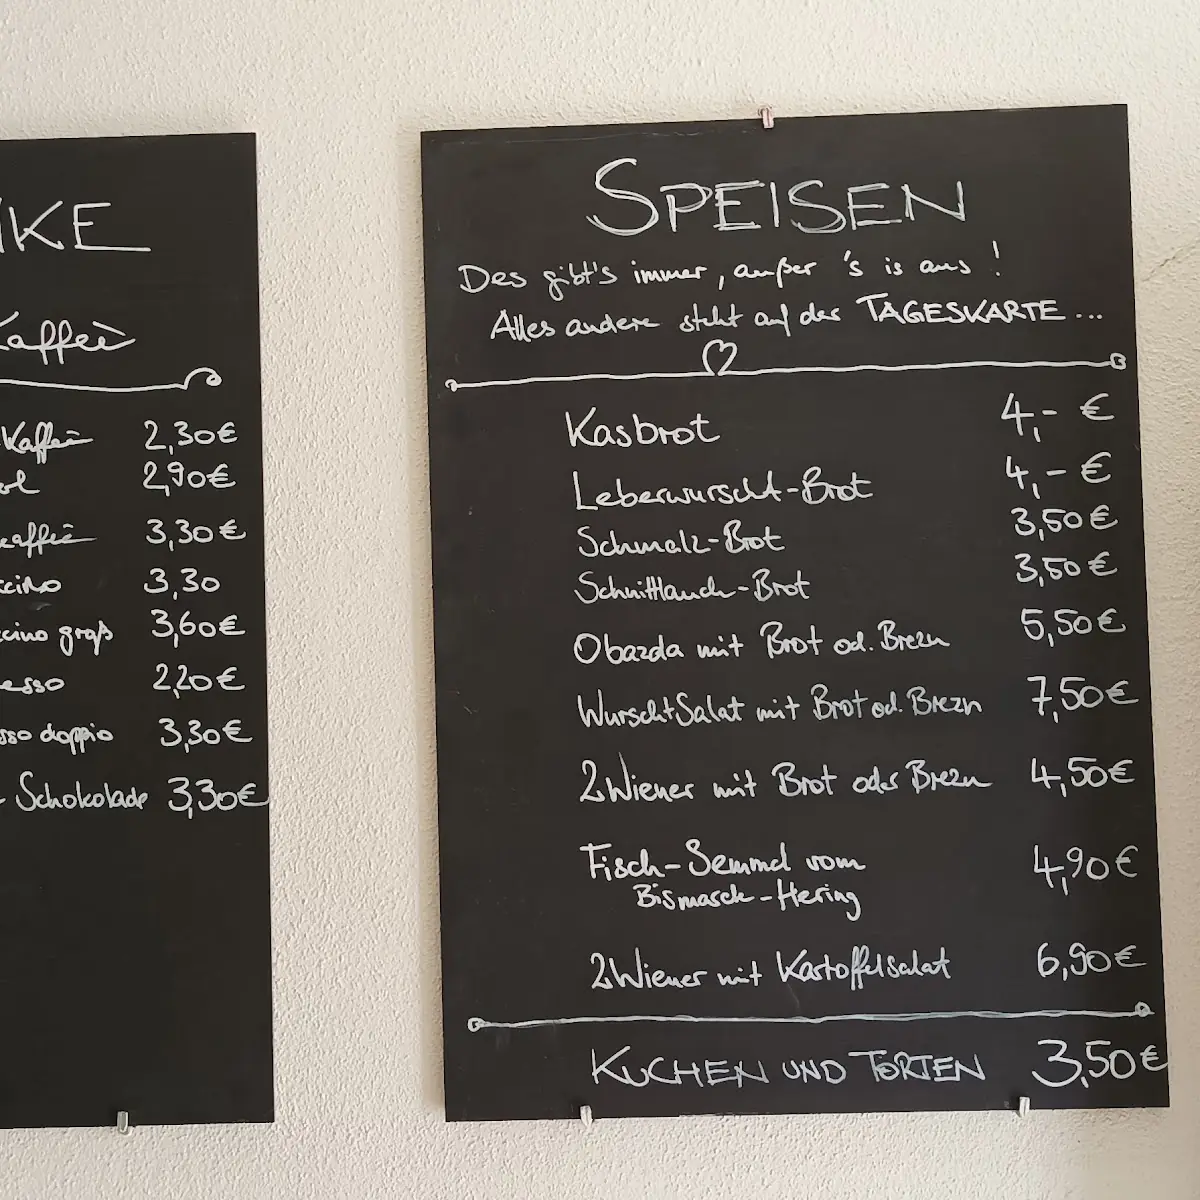 KE
Kaffee
Kaffee 2,30€
2,90€
kaffee 3,30€
3,30
ccino groß 3,60€
esso 2,20€
sso doppio 3,30€
Schokolade 3,30€
SPEISEN
Des gibt's immer, außer 's is aus!
Alles andere steht auf der TAGESKARTE...
Kasbrot 4,- €
Leberwurscht-Brot 4,- €
Schmalz-Brot 3,50€
Schnittlauch-Brot 3,50€
Obazda mit Brot od. Brezn 5,50€
WurschtSalat mit Brot od. Brezn 7,50€
2 Wiener mit Brot oder Brezn 4,50€
Fisch-Semmel vom 4,90€
Bismarck-Hering
2 Wiener mit Kartoffelsalat 6,90€
KUCHEN UND TORTEN 3,50€